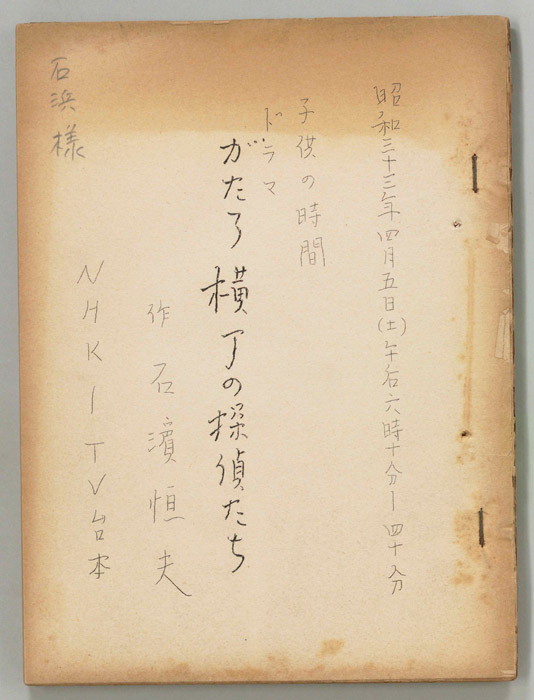 昭和三十三年四月五日(土)午后六時十分ー四十分
子供の時間
ドラマ
がたろ横丁の探偵たち
作 石濱恒夫
NHKーTV台本
石浜様